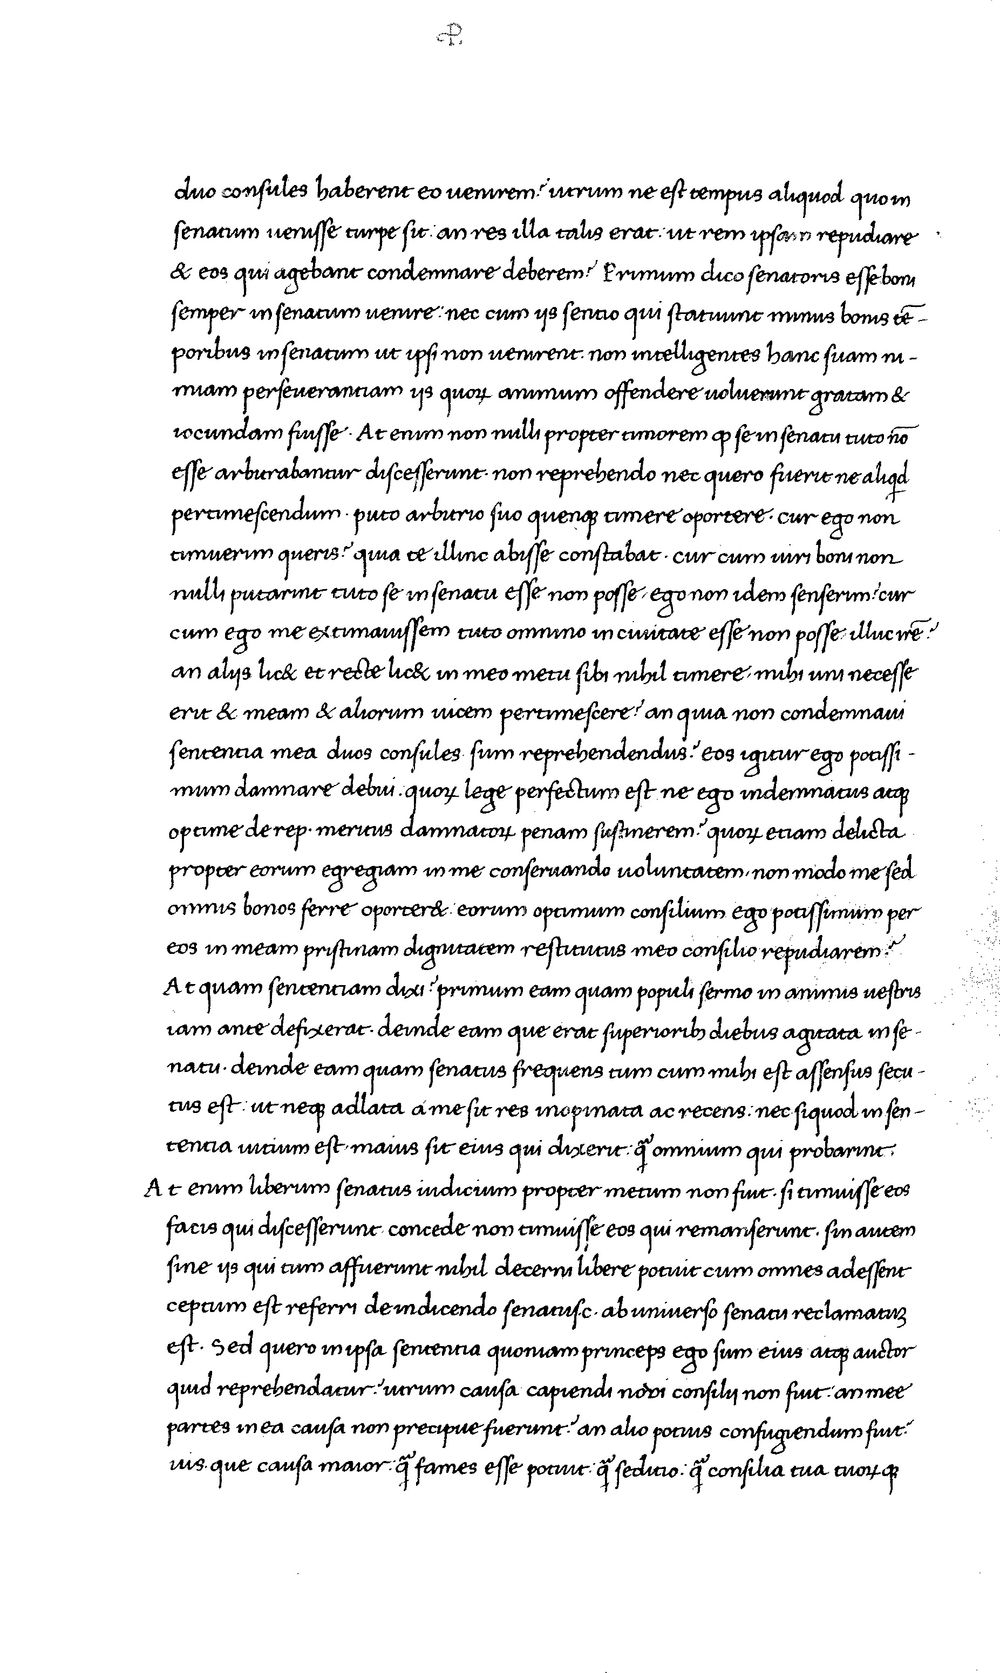 duo consules haberent eo uenirem? utrum ne est tempus aliquod quo in
senatum uenisse turpe sit: an res illa talis erat: ut rem ipsam repudiare
& eos qui agebant condemnare deberem? Primum dico senatoris esse boni
semper in senatum uenire: nec cum iis sentio qui statuunt minus bonis tē-
poribus in senatum ut ipsi non uenirent. non intelligentes hanc suam ni-
miam perseuerantiam iis quoꝝ animum offendere uoluerunt gratam &
iocundam fuisse. At enim non nulli propter timorem ꝙ se in senatu tuto nō
esse arbitrabantur discesserunt. non reprehendo nec quero fuerit ne aliqd
pertimescendum. puto arbitrio suo quenqꝫ timere oportere. cur ego non
timuerim queris? quia te illinc abisse constabat. cur cum uiri boni non
nulli putarint tuto se in senatu esse non posse, ego non idem senserim? cur
cum ego me extimauissem tuto omnino in ciuitate esse non posse, illuc irē?
an aliis lic& et recte lic& in meo metu sibi nihil timere, mihi uni necesse
erit & meam & aliorum uicem pertimescere? an quia non condemnaui
sententia mea duos consules sum reprehendendus? eos igitur ego potissi-
mum damnare debui. quoꝝ lege perfectum est ne ego indemnatus atqꝫ
optime de rep. meritus damnatoꝝ penam sustinerem? quoꝝ etiam delicta
propter eorum egregiam in me conseruando uoluntatem, non modo me sed
omnis bonos ferre oporter&. eorum optimum consilium ego potissimum per
eos in meam pristinam dignitatem restitutus meo consilio repudiarem?
At quam sententiam dixi? primum eam quam populi sermo in animis uestris
iam ante defixerat. deinde eam que erat superioribꝫ diebus agitata in se-
natu. deinde eam quam senatus frequens tum cum mihi est assensus secu-
tus est: ut neqꝫ adlata a me sit res inopinata ac recens: nec siquod in sen-
tentia uitium est, maius sit eius qui dixerit: q̄ omnium qui probarint.
At enim liberum senatus iudicium propter metum non fuit. si timuisse eos
facis qui discesserunt. concede non timuisse eos qui remanserunt. sin autem
sine iis qui tum affuerunt nihil decerni libere potuit cum omnes adessent
ceptum est referri de indicendo senatus.c. ab uniuerso senatu reclamatuꝫ
est. Sed quero in ipsa sententia quoniam princeps ego sum eius atqꝫ auctor
quid reprehendatur? utrum causa capiendi novi consilii non fuit: an mee
partes in ea causa non precipue fuerunt? an alio potius confugiendum fuit?
uis. que causa maior: q̄ fames esse potuit: q̄ seditio: q̄ consilia tua tuoꝝqꝫ